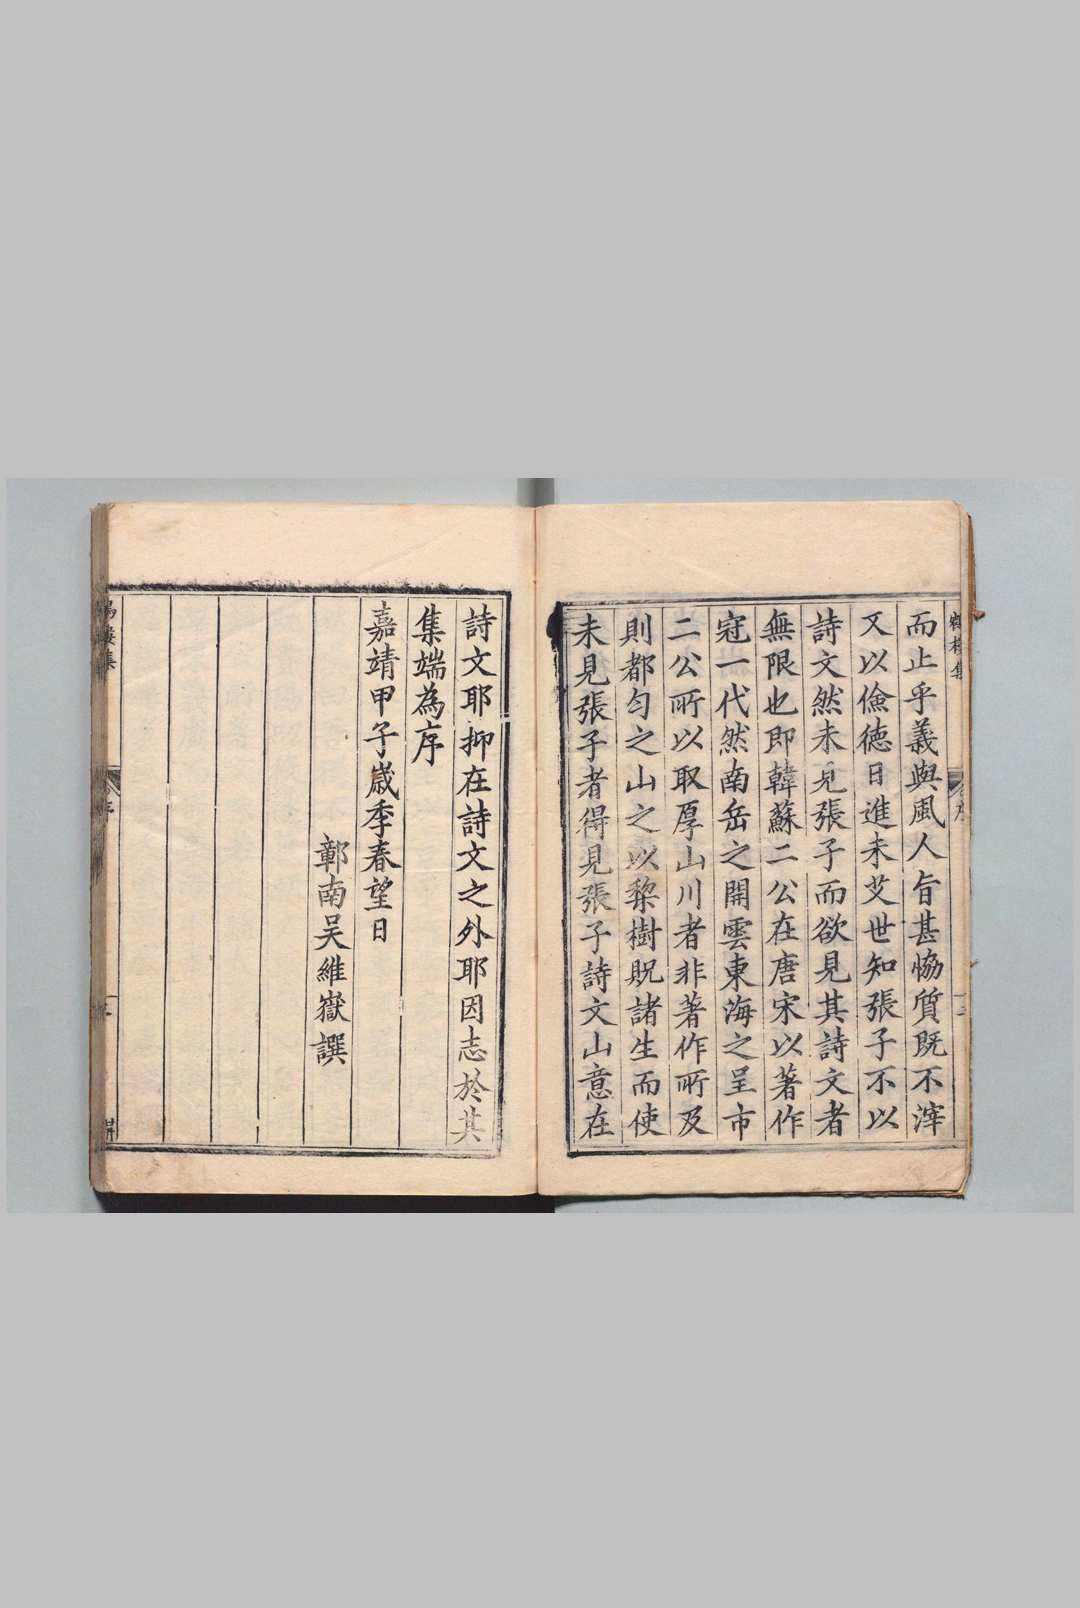 而止乎義與風人旨甚恊質既不滓
又以儉徳日進未艾世知張子不以
詩文然未見張子而欲見其詩文者
無限也即韓蘇二公在唐宋以著作
冠一代然南岳之開雲東海之呈市
二公所以取厚山川者非著作所及
則都勻之山之以黎樹貺諸生而使
未見張子者得見張子詩文山意在
詩文耶抑在詩文之外耶因志於其
集端為序
嘉靖甲子歳季春望日
鄣南吴維嶽譔